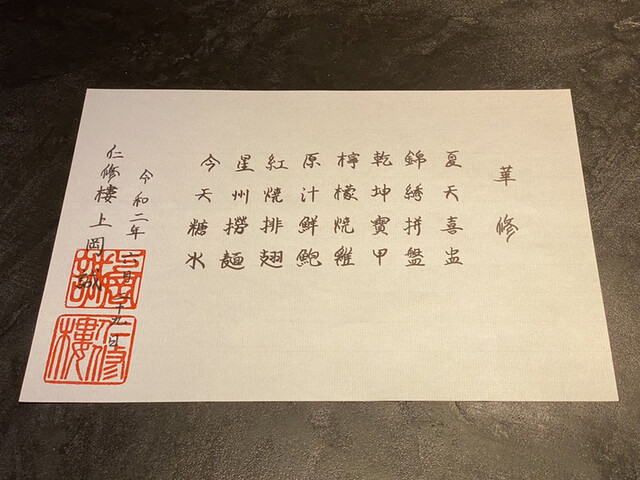 華修
夏天喜盅
錦綉拼盤
乾坤寶甲
檸檬焼雞
原汁鮮鮑
紅焼排翅
星州撈麵
今天糖水
令和二年六月二十九日
仁修樓上岡誠
上岡誠
仁修樓